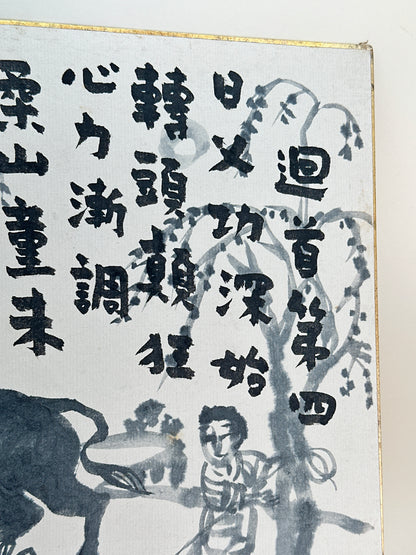 迴首第四
日久功深始
轉頭顛狂
心力漸調
柔山童未